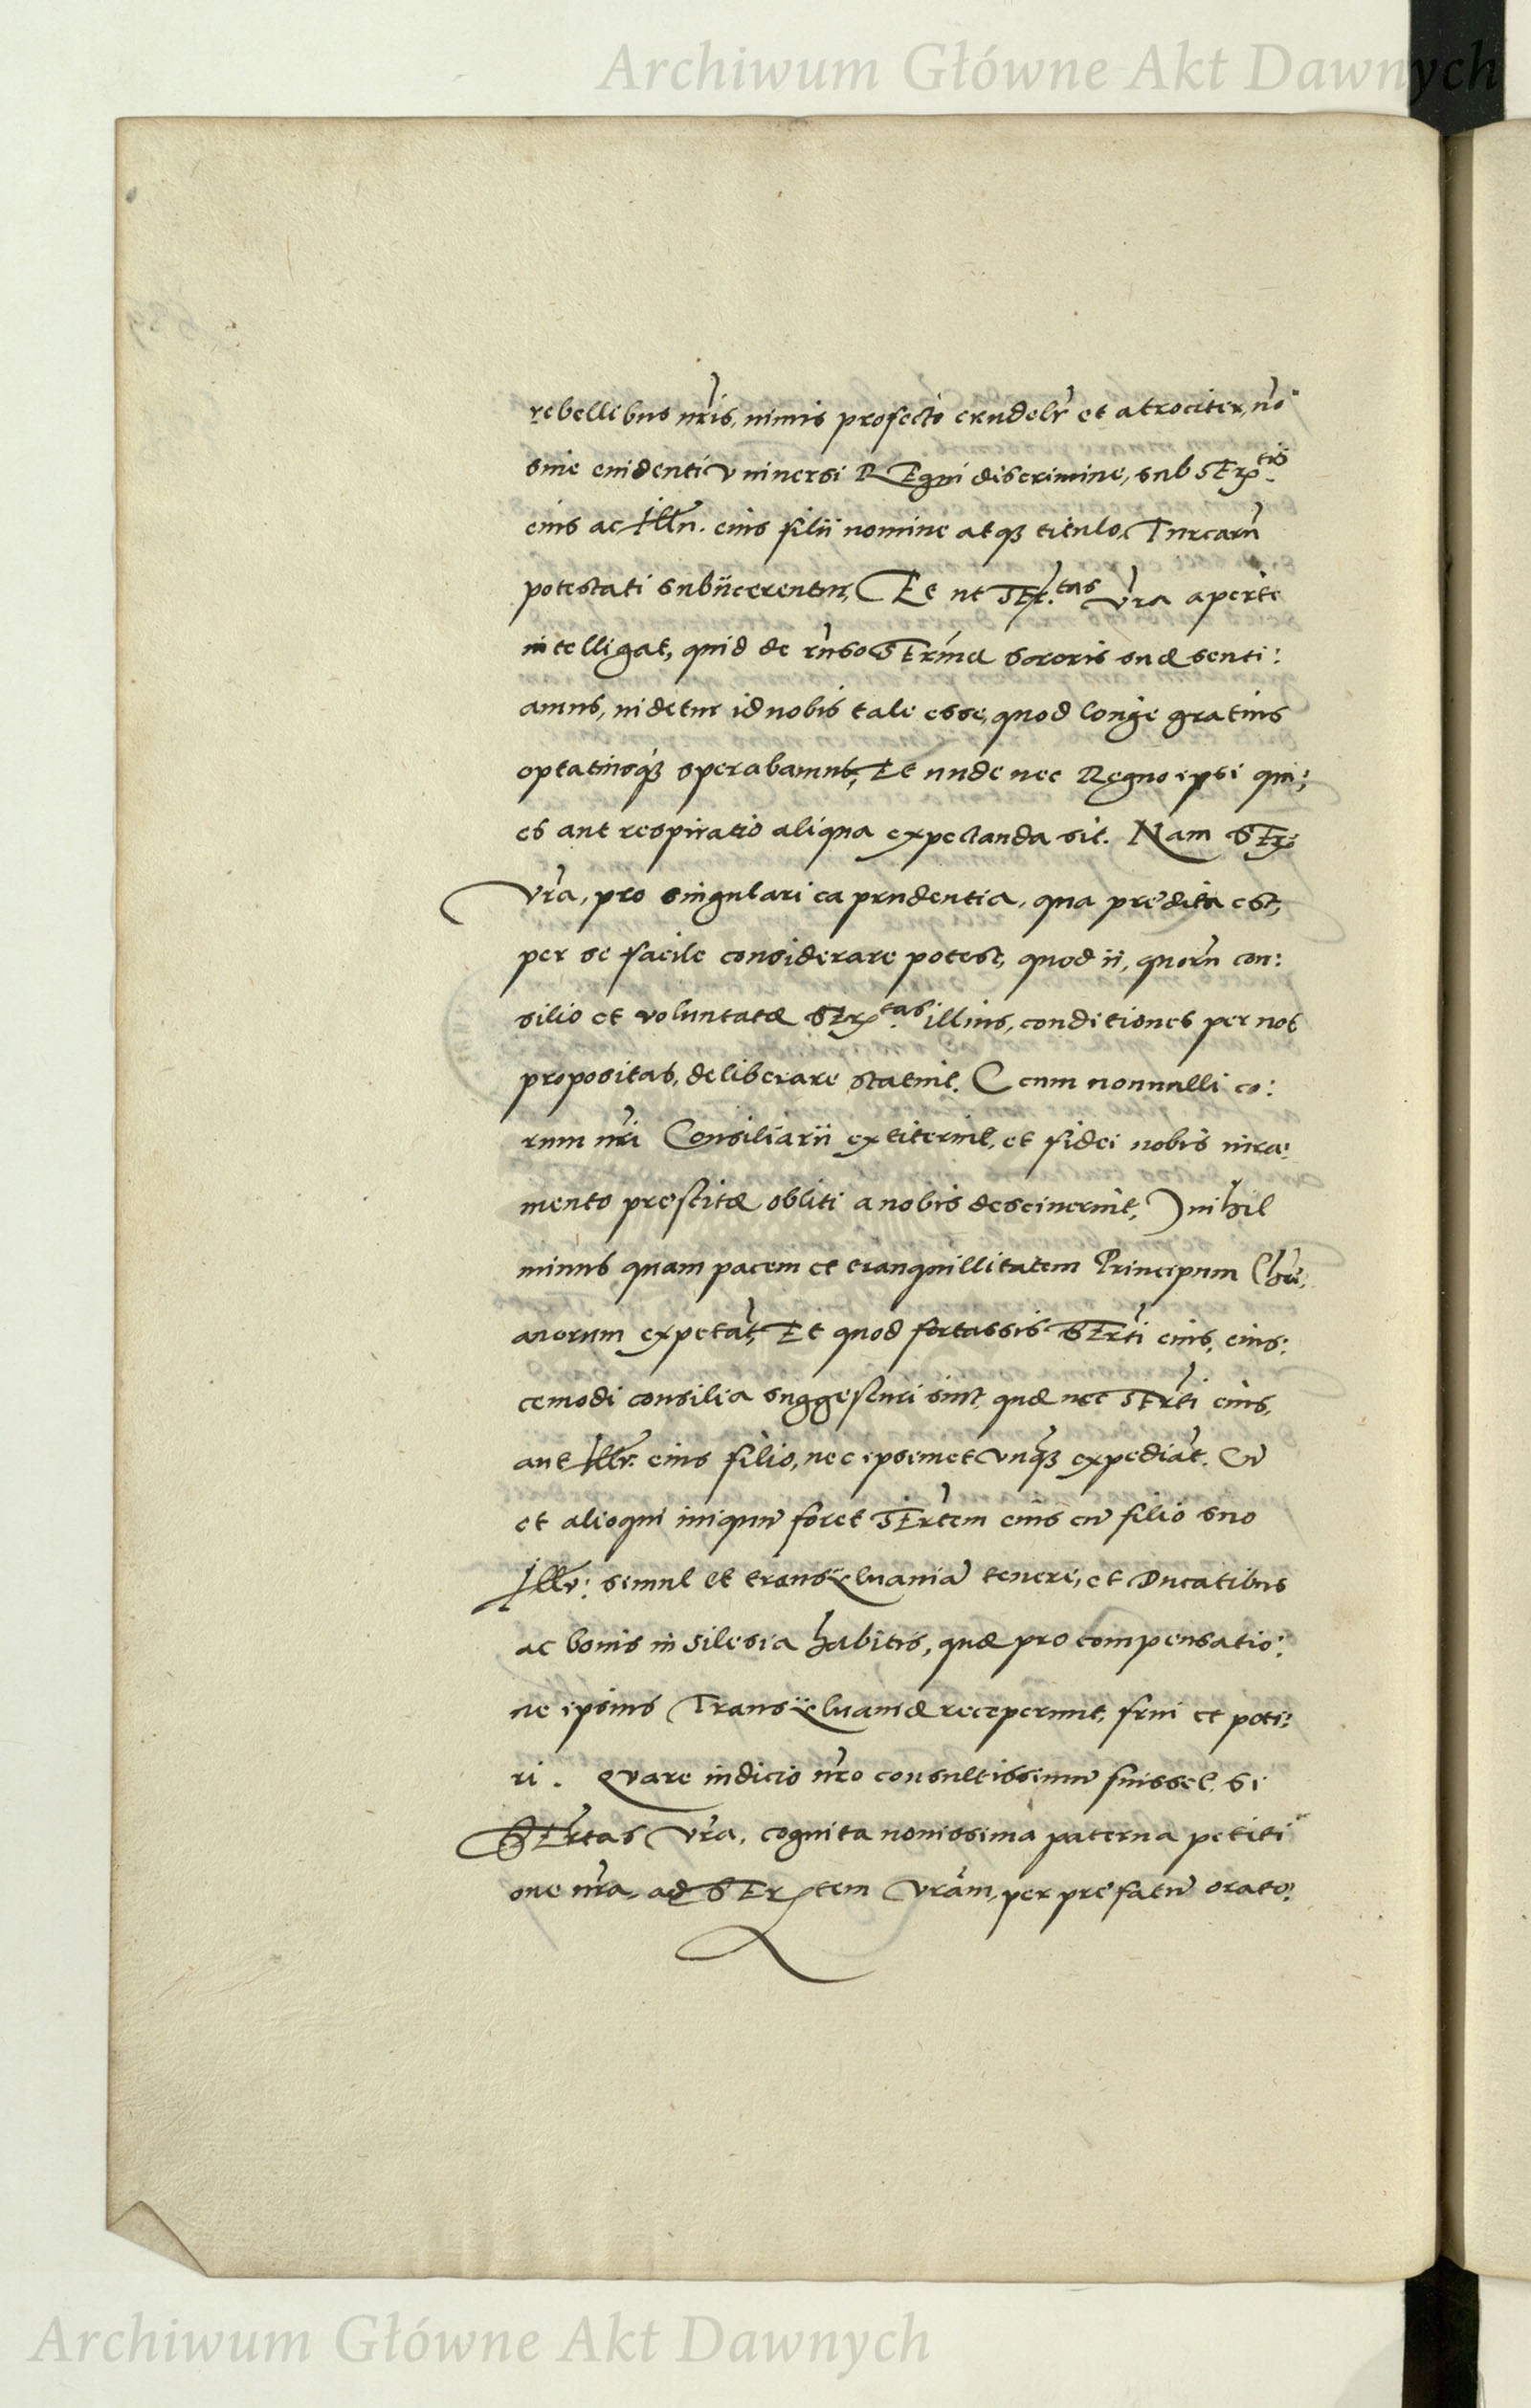 Archiwum Główne Akt Dawnych
rebellibus nris, nimis profecto crudelr et atrociter, no
sine euidenti vniuersi REgni discrimine, sub SEr.tis
eius ac Illn. eius filii nomine atq3 titulo, Turcaru
potestati subiicerentur, Et ut SEr.tas Vra aperte
intelligat, quid de rnso SErme sororis suae senti:
amus, uidetur id nobis tale esse, quod longe gratius
optatiusq3 sperabamus, Et unde nec Regno ipsi qui:
es aut respiratio aliqua expectanda sit. Nam SEr:
Vra, pro singulari ea prudentia, qua predita est,
per se facile considerare potest, quod ii, quoru con:
silio et voluntate SEr.tas illius, conditiones per nos
propositas, deliberare statuit. (cum nonnulli eo:
rum nri Consiliarii extiterint, et fidei nobis iura:
mento prestitae obliti a nobis desciuerint,) nihil
minus quam pacem et tranquillitatem Principum Chri:
anorum expetat, Et quod fortassis SErti eius, eius:
cemodi consilia suggesturi sint, quae nec SErti eius,
aut Illr. eius filio, nec ipsimet vnq3 expediat. Cu
et alioqui iniquu foret SErtem eius cu filio suo
Illr: simul et transÿluania tenere, et Ducatibus
ac bonis in Silesia habitis, quae pro compensatio:
ne ipsius Transÿluaniae receperunt, frui et poti:
ri. Quare iudicio nro consultissimu fuisset, si
SErtas Vra, cognita nouissima paterna petiti
one nra, ad SErtem Vram, per prefatu orato:
Archiwum Główne Akt Dawnych